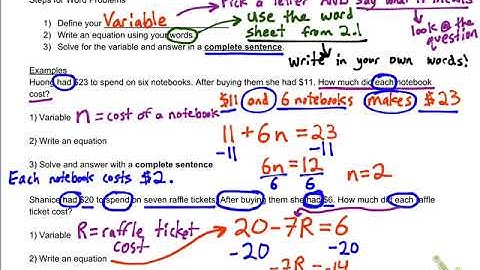 Steps for Word Problems
Pick a letter AND say what it means
1) Define your Variable
2) Write an equation using your words.
use the word
sheet from 2.1
look @ the
question
3) Solve for the variable and answer in a complete sentence.
write in your own words!
Examples
Huong had $23 to spend on six notebooks. After buying them she had $11. How much did each notebook
cost?
$11 and 6 notebooks makes $23
1) Variable n = cost of a notebook
11 + 6n = 23
2) Write an equation
-11 -11
6n = 12
6 6
n = 2
3) Solve and answer with a complete sentence
Each notebook costs $2.
Shanice had $20 to spend on seven raffle tickets. After buying them she had $6. How much did each raffle
ticket cost?
1) Variable R = raffle ticket
cost
20 - 7R = 6
-20 -20
2) Write an equation
-7R = -14